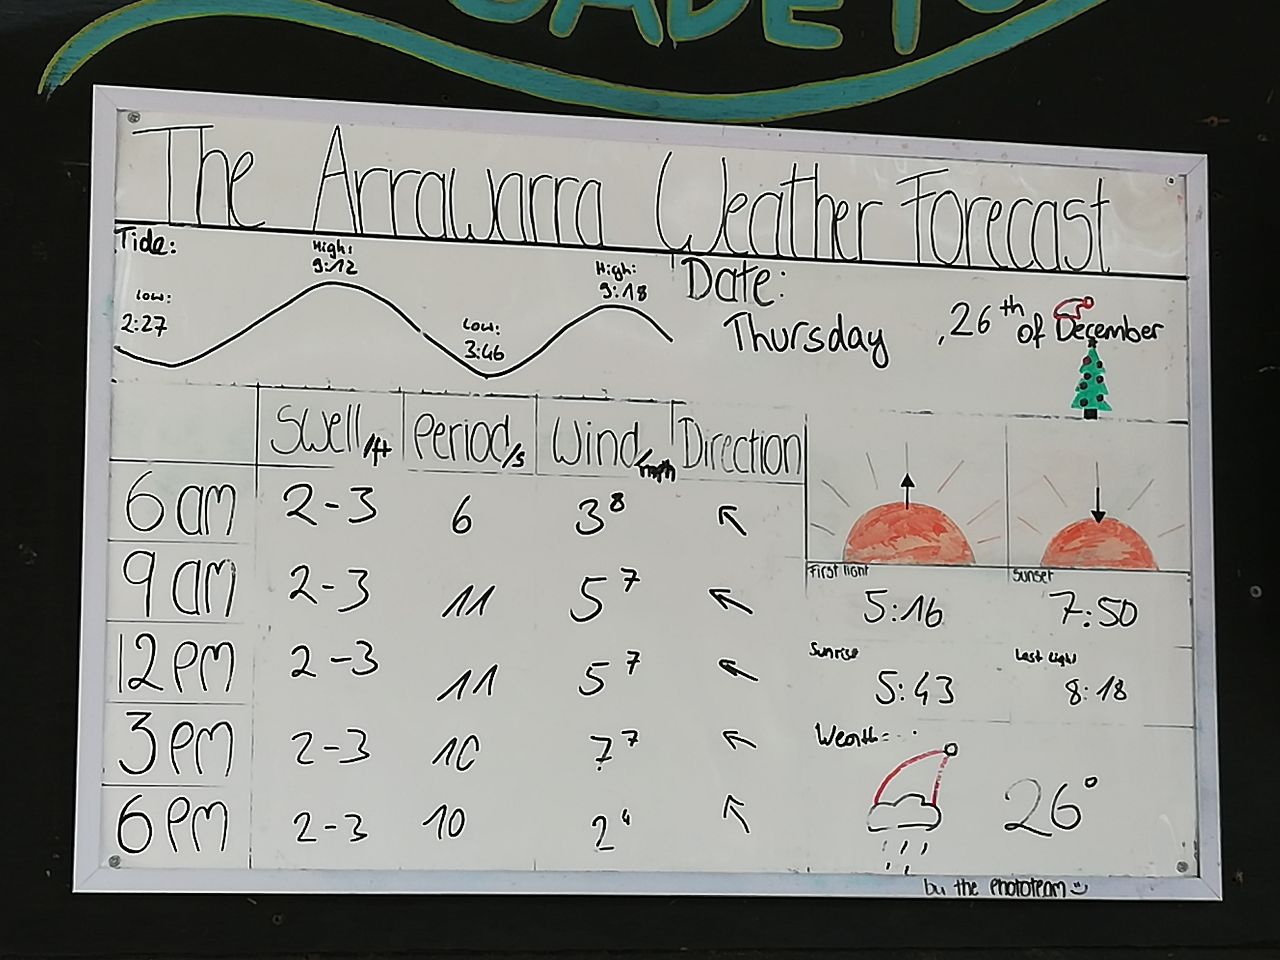 The Arrawarra Weather Forecast
Tide:
Low:
2:27
High:
9:12
Low:
3:46
High:
9:18
Date:
Thursday ,26th of December
Swell/ft Period/s Wind/mph Direction
6 am 2-3 6 3 8
9 am 2-3 11 5 7
12 pm 2-3 11 5 7
3 pm 2-3 10 7 7
6 pm 2-3 10 2
First light
5:16
Sunset
7:50
Sunrise
5:43
Last light
8:18
26°
by the phototeam